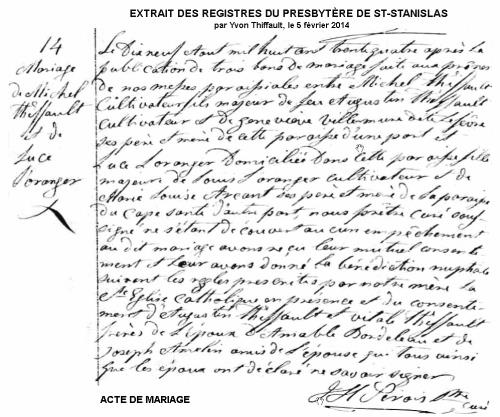 EXTRAIT DES REGISTRES DU PRESBYTÈRE DE ST-STANISLAS
par Yvon Thiffault, le 5 février 2014
14
Mariage
de Michel
Thiffault
et de
Luce
L'oranger
Le Dixneuf Aout mil huit cent trente quatre après la
publication de trois bans de mariage faite aux prônes
de nos messes paroissiales entre Michel Thiffault
Cultivateur fils majeur de feu Augustin Thiffault
Cultivateur et de geneveve
ses père et mère de cette paroisse d'une part et
Luce L'oranger Domiciliée dans cette paroisse fille
majeure de Louis L'oranger cultivateur et de
Marie Louise Arcant ses père et mère de la paroisse
du Cape Santé d'autre part, nous prêtre curé sous
signé ne s'étant découvert aucun empêchement
au dit mariage avons reçu leur mutuel consente
ment et leur avons donné la bénédiction nuptiale
suivant les règles prescrites par notre mère la
Ste Eglise Catholique en présence et du consente
ment d'Augustin Thiffault et vitale Thiffault
frères de l'époux d'Amable Bordeleau et de
Joseph Amelin amis de l'épouse qui tous ainsi
que les époux ont déclaré ne savoir signer
Ptre
curé
ACTE DE MARIAGE